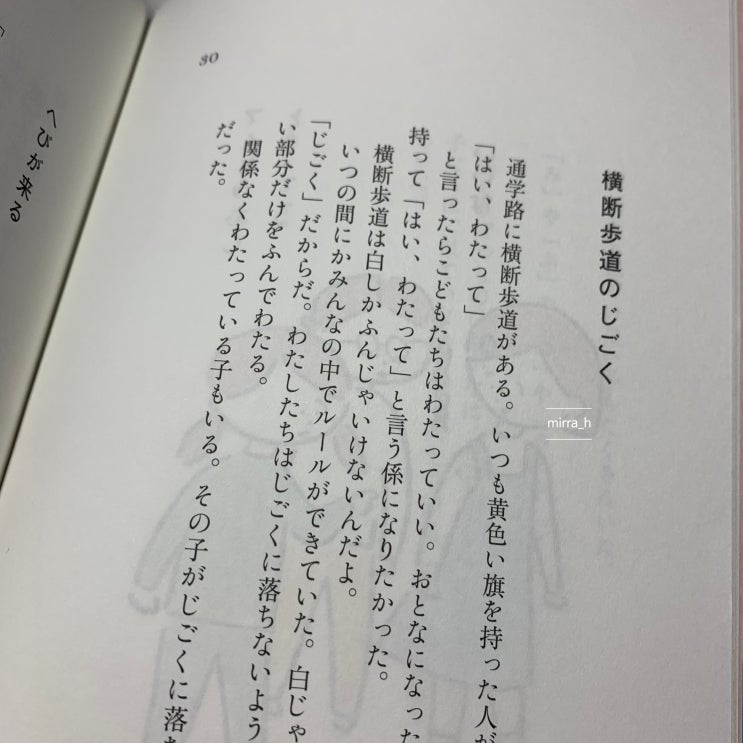 横断歩道のじごく
通学路に横断歩道がある。いつも黄色い旗を持った人が
「はい、わたって」
と言ったらこどもたちはわたっていい。おとなになった
持って「はい、わたって」と言う係になりたかった。
横断歩道は白しかふんじゃいけないんだよ。
いつの間にかみんなの中でルールができていた。白じゃ
「じごく」だからだ。わたしたちはじごくに落ちないよう
い部分だけをふんでわたる。
関係なくわたっている子もいる。その子がじごくに落ち
だった。
30
へびが来る
mirra_h